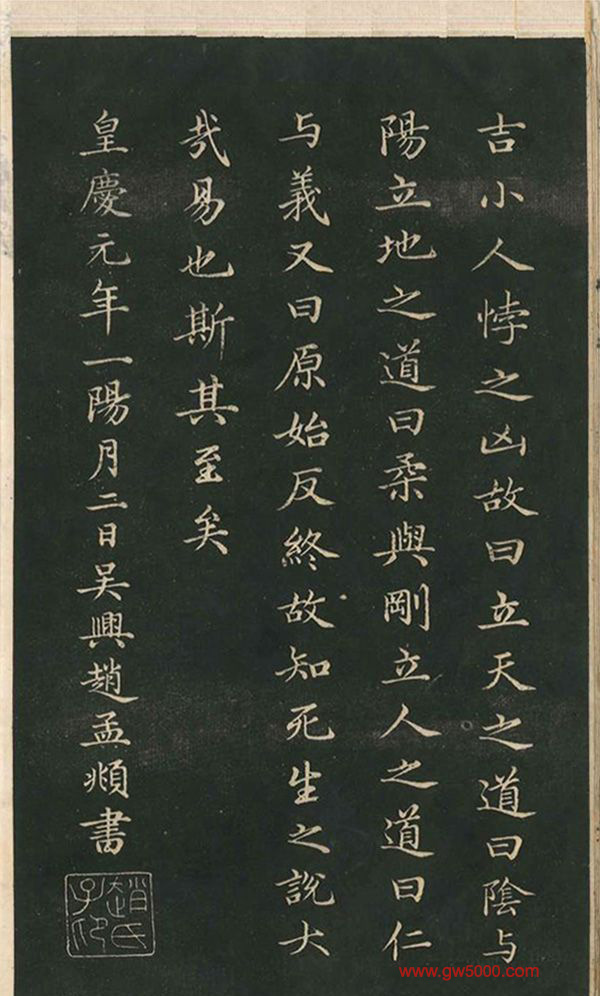 吉小人悖之凶故曰立天之道曰陰与
陽立地之道曰柔與剛立人之道曰仁
与義又曰原始反終故知死生之說大
㢤易也斯其至矣
皇慶元年一陽月二日吳興趙孟頫書
趙氏子印
www.gw5000.com